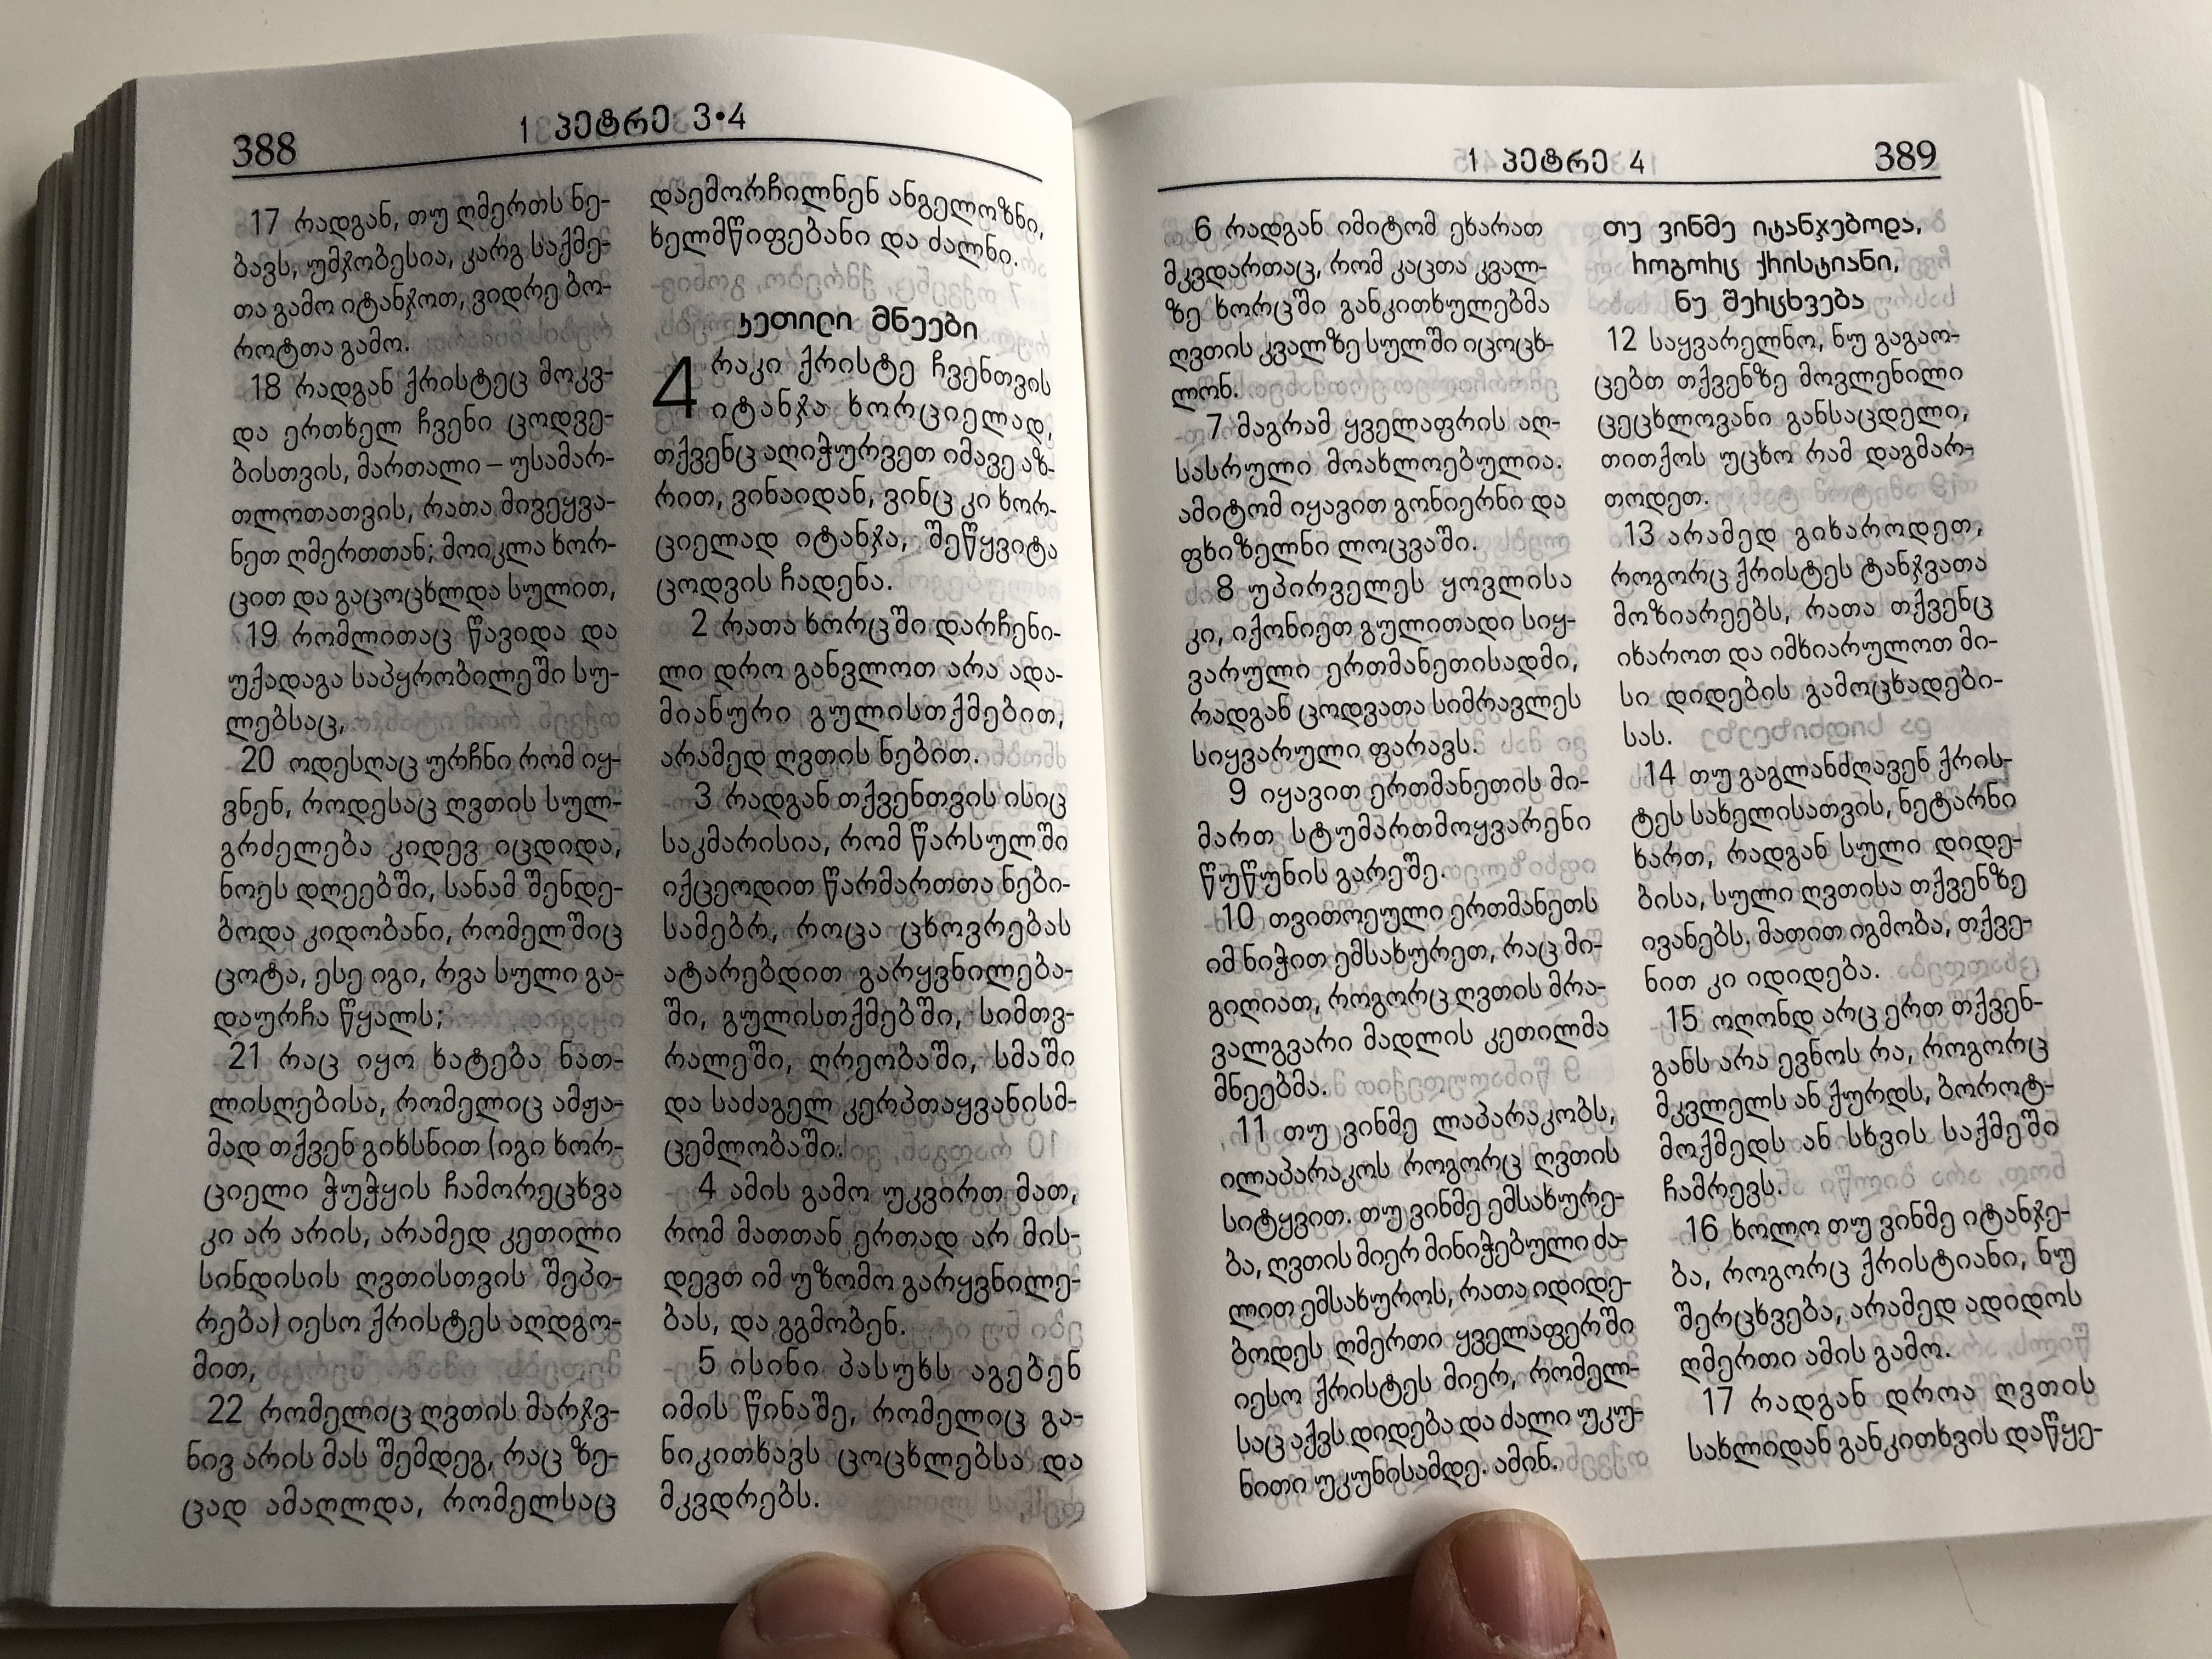 388
1 პეტრე 3•4
17 რადგან, თუ ღმერთს ნე-
ბავს, უმჯობესია, კარგ საქმე-
თა გამო იტანჯოთ, ვიდრე ბო-
როტთა გამო.
18 რადგან ქრისტეც მოკვ-
და ერთხელ ჩვენი ცოდვე-
ბისთვის, მართალი – უსამარ-
თლოთათვის, რათა მივეყვა-
ნეთ ღმერთთან; მოიკლა ხორ-
ცით და გაცოცხლდა სულით,
19 რომლითაც წავიდა და
უქადაგა საპყრობილეში სუ-
ლებსაც,
20 ოდესღაც ურჩნი რომ იყ-
ვნენ, როდესაც ღვთის სულ-
გრძელება კიდევ იცდიდა,
ნოეს დღეებში, სანამ შენდე-
ბოდა კიდობანი, რომელშიც
ცოტა, ესე იგი, რვა სული გა-
დაურჩა წყალს;
21 რაც იყო ხატება ნათ-
ლისღებისა, რომელიც ამჟა-
მად თქვენ გიხსნით (იგი ხორ-
ციელი ჭუჭყის ჩამორეცხვა
კი არ არის, არამედ კეთილი
სინდისის ღვთისთვის შეპი-
რება) იესო ქრისტეს აღდგო-
მით,
22 რომელიც ღვთის მარჯვ-
ნივ არის მას შემდეგ, რაც ზე-
ცად ამაღლდა, რომელსაც
დაემორჩილნენ ანგელოზნი,
ხელმწიფებანი და ძალნი.
კეთილი მნეები
4 რაკი ქრისტე ჩვენთვის
იტანჯა ხორციელად,
თქვენც აღიჭურვეთ იმავე აზ-
რით, ვინაიდან, ვინც კი ხორ-
ციელად იტანჯა, შეწყვიტა
ცოდვის ჩადენა.
2 რათა ხორცში დარჩენი-
ლი დრო განვლოთ არა ადა-
მიანური გულისთქმებით,
არამედ ღვთის ნებით.
3 რადგან თქვენთვის ისიც
საკმარისია, რომ წარსულში
იქცეოდით წარმართთა ნები-
სამებრ, როცა ცხოვრებას
ატარებდით გარყვნილება-
ში, გულისთქმებში, სიმთვ-
რალეში, ღრეობაში, სმაში
და საძაგელ კერპთაყვანისმ-
ცემლობაში.
4 ამის გამო უკვირთ მათ,
რომ მათთან ერთად არ მის-
დევთ იმ უზომო გარყვნილე-
ბას, და გგმობენ.
5 ისინი პასუხს აგებენ
იმის წინაშე, რომელიც გა-
ნიკითხავს ცოცხლებსა და
მკვდრებს.
1 პეტრე 4
389
6 რადგან იმიტომ ეხარათ
მკვდართაც, რომ კაცთა კვალ-
ზე ხორცში განკითხულებმა
ღვთის კვალზე სულში იცოცხ-
ლონ.
7 მაგრამ ყველაფრის აღ-
სასრული მოახლოებულია.
ამიტომ იყავით გონიერნი და
ფხიზელნი ლოცვაში.
8 უპირველეს ყოვლისა
კი, იქონიეთ გულითადი სიყ-
ვარული ერთმანეთისადმი,
რადგან ცოდვათა სიმრავლეს
სიყვარული ფარავს.
9 იყავით ერთმანეთის მი-
მართ სტუმართმოყვარენი
წუწუნის გარეშე.
10 თვითოეული ერთმანეთს
იმ ნიჭით ემსახურეთ, რაც მი-
გიღიათ, როგორც ღვთის მრა-
ვალგვარი მადლის კეთილმა
მნეებმა.
11 თუ ვინმე ლაპარაკობს,
ილაპარაკოს როგორც ღვთის
სიტყვით. თუ ვინმე ემსახურე-
ბა, ღვთის მიერ მინიჭებული ძა-
ლით ემსახუროს, რათა იდიდე-
ბოდეს ღმერთი ყველაფერში
იესო ქრისტეს მიერ, რომელ-
საც აქვს დიდება და ძალი უკუ-
ნითი უკუნისამდე. ამინ.
თუ ვინმე იტანჯებოდა,
როგორც ქრისტიანი,
ნუ შერცხვება
12 საყვარელნო, ნუ გაგაო-
ცებთ თქვენზე მოვლენილი
ცეცხლოვანი განსაცდელი,
თითქოს უცხო რამ დაგმარ-
თოდეთ.
13 არამედ გიხაროდეთ,
როგორც ქრისტეს ტანჯვათა
მოზიარეებს, რათა თქვენც
იხაროთ და იმხიარულოთ მი-
სი დიდების გამოცხადები-
სას.
14 თუ გაგლანძღავენ ქრის-
ტეს სახელისათვის, ნეტარნი
ხართ, რადგან სული დიდე-
ბისა, სული ღვთისა თქვენზე
ივანებს. მათით იგმობა, თქვე-
ნით კი იდიდება.
15 ოღონდ არც ერთ თქვენ-
განს არა ევნოს რა, როგორც
მკვლელს ან ქურდს, ბოროტ-
მოქმედს ან სხვის საქმეში
ჩამრევს.
16 ხოლო თუ ვინმე იტანჯე-
ბა, როგორც ქრისტიანი, ნუ
შერცხვება, არამედ ადიდოს
ღმერთი ამის გამო.
17 რადგან დროა ღვთის
სახლიდან განკითხვის დაწყე-